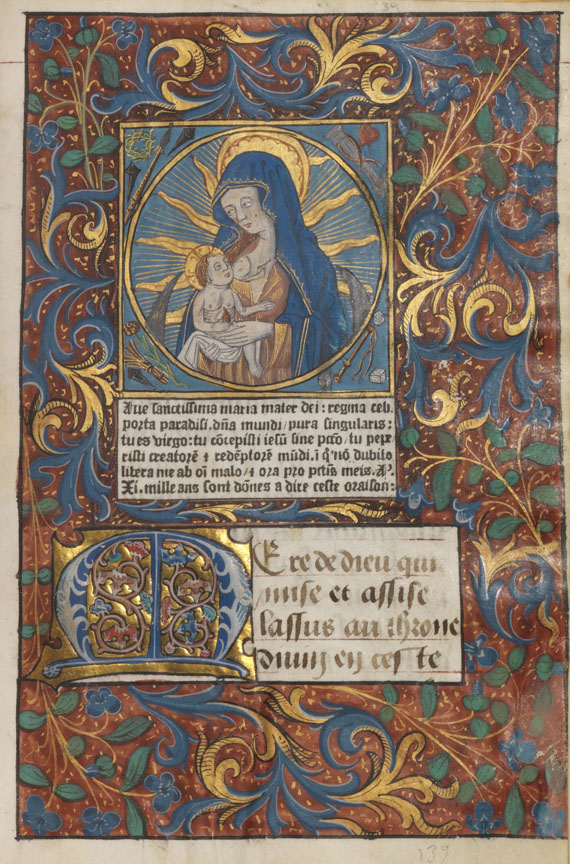 Aue sanctissima maria mater dei: regina celi.
porta paradisi. dña mundi/ pura singularis:
tu es virgo: tu cōcepisti iesū sine pctō/ tu pepe
risti creatorē ⁊ redēptorē mūdi. ī q̄ nō dubito
libera me ab oī malo/ ⁊ ora pro pctis meis. Aꝫ.
Xi. mille ans sont dōnes a dire ceste oraison:
M Ere de dieu qui
mise et assise
lassus au throne
diuin en ces te
139